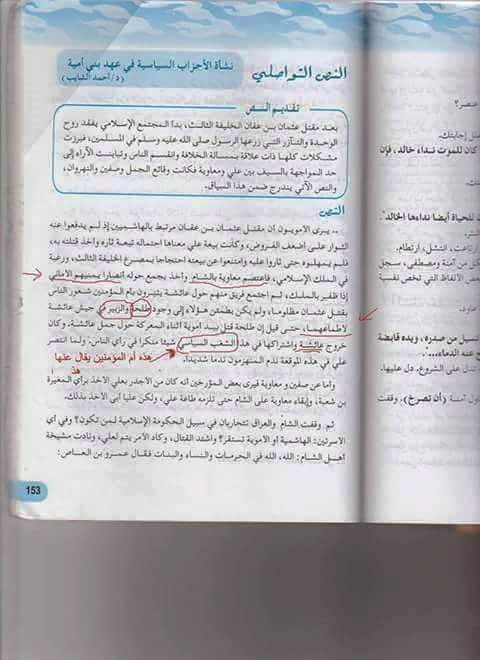 النص التواصلي
نشأة الأحزاب السياسية في عهد بني أمية
(د/أحمد الشايب)
تقديم النص
بعد مقتل عثمان بن عفان الخليفة الثالث، بدأ المجتمع الإسلامي يفقد روح
الوحدة والتآزر التي زرعها الرسول صلى الله عليه وسلم في المسلمين، فبرزت
مشكلات كلها ذات علاقة بمسألة الخلافة وانقسم الناس وتباينت الآراء إلى
حد المواجهة بالسيف بين علي ومعاوية فكانت وقائع الجمل وصفين والنهروان،
والنص الآتي يندرج ضمن هذا السياق.
النص
.. يرى الأمويون أن مقتل عثمان بن عفان مرتبط بالهاشميين إذ لم يدفعوا عنه
الثوار على أضعف الفروض، وكانت بيعة علي معناها احتماله تبعة ثأره وأخذ قتلته به،
فلم يمهلوه حتى ثاروا عليه وامتنعوا عن بيعته احتجاجا بمصرع الخليفة الثالث، ورغبة
في الملك الإسلامي، فاعتصم معاوية بالشام وأخذ يجمع حوله أنصارا يمنيهم الأماني
إذا ظفر بالملك، ثم اجتمع فريق منهم حول عائشة يتبركون بأم المؤمنين شعور الناس
بقتل عثمان مظلوما، ولم يكن يطمئن هؤلاء إلى وجود طلحة والزبير في جيش عائشة
لأطماعهما، حتى قيل إن طلحة قتل بيد أموية أثناء المعركة حول جمل عائشة، وكان
خروج عائشة واشتراكها في هذا الشغب السياسي شيئا منكرا في رأي الناس. ولما انتصر
علي في هذه الموقعة ندم المنهزمون ندما شديدا.
هذه أم المؤمنين يقال عنها
هذا
وأما عن صفين و معاوية فيرى بعض المؤرخين أنه كان من الأجدر بعلي الأخذ برأي المغيرة
بن شعبة، وإبقاء معاوية على الشام حتى تلزمه طاعة علي، ولكن عليا أبى الأخذ بذلك.
ثم وقفت الشام والعراق تتحاربان في سبيل الحكومة الإسلامية لمن تكون؟ وفي أي
الأسرتين: الهاشمية أو الأموية تستقر؟ واشتد القتال، وكاد الأمر يتم لعلي، ونادت مشيخة
أهل الشام: الله، الله في الحرمات والنساء والبنات فقال عمرو بن العاص:
153
عنصر؟
إجابتك.
كان للموت نداء، خالد، فإن
للحياة أيضا نداءها الخالد".
ارتاعت، التشل، ارتطام.
كل من آمنة ومصطفى، سجل
بعض الألفاظ التي تخص نفسية
عاود.
سيل من صدره، ويده قابضة
دل على الشروع. دل عليها.
آمنة (أن تصرخ)، وقفت